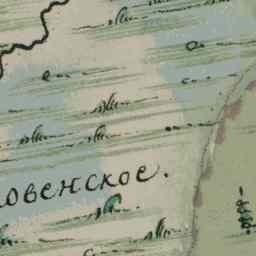 ловенское.